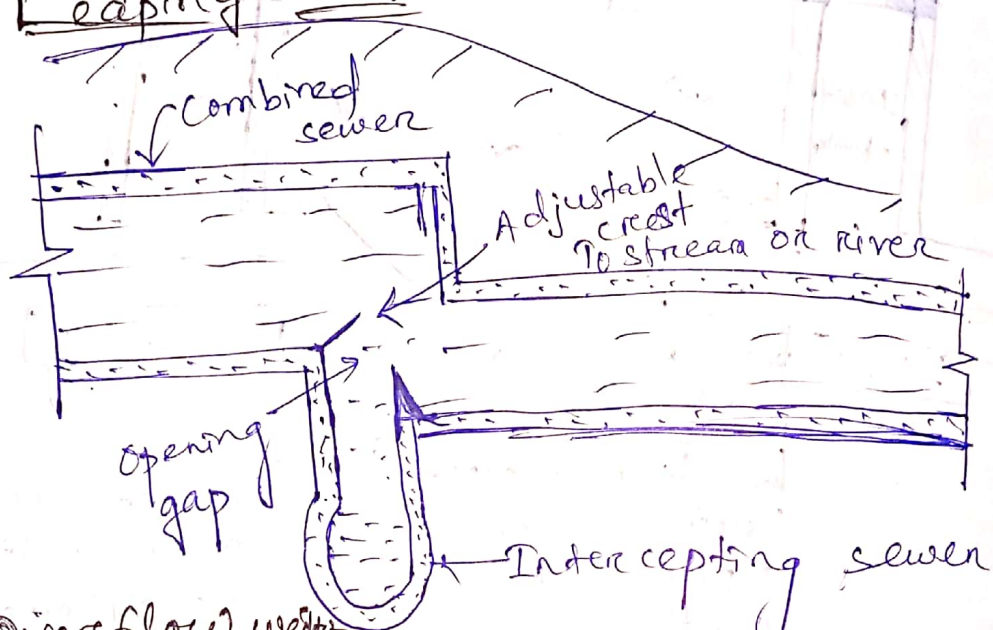 Leaping
Combined
sewer
Adjustable
crest
To stream or river
Opening
gap
Intercepting sewer